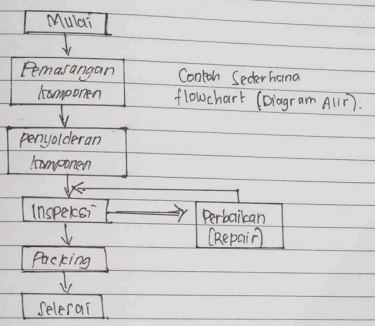 Mulai
Pemasangan
komponen
Contoh Sederhana
flowchart (Diagram Alir).
Penyolderan
komponen
Inspeksi
Perbaikan
(Repair)
Packing
Selesai